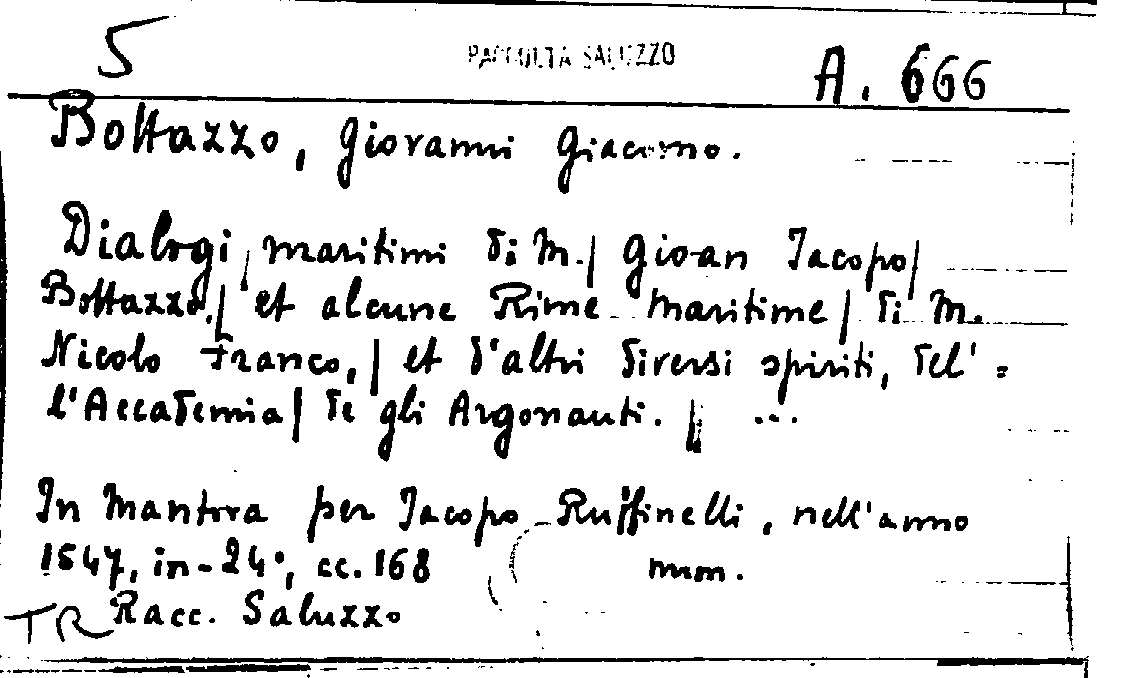 5 RACCOLTA SALUZZO A. 666
Bottazzo, Giovanni Giacomo.
Dialogi | maritimi di M. | Gioan Jacopo |
Bottazzo. | et alcune Rime maritime | di M.
Nicolo Franco, | et d'altri diversi spiriti, del' =
l'Accademia | de gli Argonauti. || ...
In Mantova per Jacopo Ruffinelli, nell'anno
1547, in-24°, cc. 168 num.
TR Racc. Saluzzo